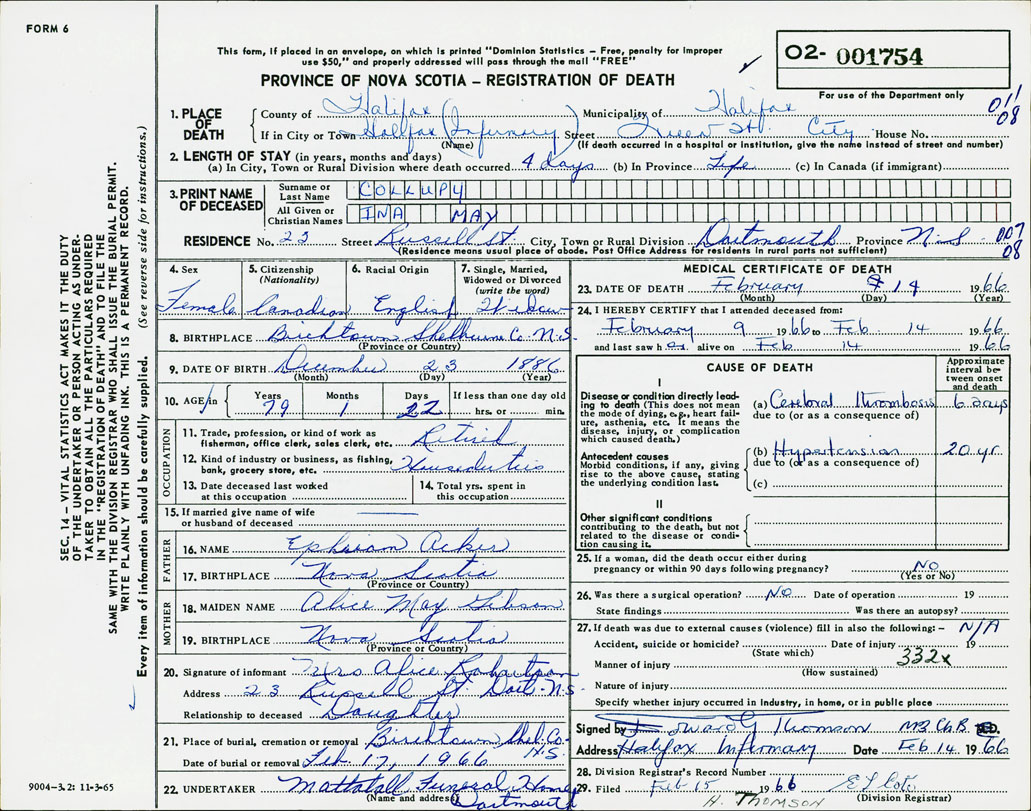 FORM 6
This form, if placed in an envelope, on which is printed "Dominion Statistics – Free, penalty for improper
use $50," and properly addressed will pass through the mail "FREE"
PROVINCE OF NOVA SCOTIA – REGISTRATION OF DEATH
O2- 001754
For use of the Department only
011
08
1. PLACE OF DEATH
County of Halifax Municipality of Halifax
If in City or Town Halifax (Infirmary) Street Queen St. City House No.
(Name) (If death occurred in a hospital or institution, give the name instead of street and number)
2. LENGTH OF STAY (in years, months and days)
(a) In City, Town or Rural Division where death occurred 4 days (b) In Province Life (c) In Canada (if immigrant)
3. PRINT NAME OF DECEASED
Surname or Last Name COLLUPY
All Given or Christian Names INA MAY
RESIDENCE No. 23 Street Russell St. City, Town or Rural Division Dartmouth Province N.S 007
08
(Residence means usual place of abode. Post Office Address for residents in rural parts not sufficient)
4. Sex Female
5. Citizenship (Nationality) Canadian
6. Racial Origin English
7. Single, Married, Widowed or Divorced (write the word) Widow
8. BIRTHPLACE Birchtown Shelburne Co. N.S.
(Province or Country)
9. DATE OF BIRTH December 23 1886
(Month) (Day) (Year)
10. AGE in Years 79 Months 1 Days 22 If less than one day old hrs. or min.
OCCUPATION
11. Trade, profession, or kind of work as fisherman, office clerk, sales clerk, etc. Retired
12. Kind of industry or business, as fishing, bank, grocery store, etc. Houseduties
13. Date deceased last worked at this occupation
14. Total yrs. spent in this occupation
15. If married give name of wife or husband of deceased
FATHER
16. NAME Ephriam Acker
17. BIRTHPLACE Nova Scotia
(Province or Country)
MOTHER
18. MAIDEN NAME Alice May Gibson
19. BIRTHPLACE Nova Scotia
(Province or Country)
20. Signature of informant Mrs Alice Robertson
Address 23 Russell St. Dart. N.S.
Relationship to deceased Daughter
21. Place of burial, cremation or removal Birchtown Shel. Co. N.S
Date of burial or removal Feb. 17, 1966
22. UNDERTAKER Mattatall Funeral Home
(Name and address) Dartmouth
MEDICAL CERTIFICATE OF DEATH
23. DATE OF DEATH February 14 1966
(Month) (Day) (Year)
24. I HEREBY CERTIFY that I attended deceased from:
February 9 1966 to Feb 14 1966
and last saw her alive on Feb 14 1966
CAUSE OF DEATH
Approximate interval between onset and death
I
Disease or condition directly leading to death (This does not mean the mode of dying, e.g., heart failure, asthenia, etc. It means the disease, injury, or complication which caused death.)
(a) Cerebral thrombosis 6 days
due to (or as a consequence of)
Antecedent causes
Morbid conditions, if any, giving rise to the above cause, stating the underlying condition last.
(b) Hypertension 20 yr.
due to (or as a consequence of)
(c)
II
Other significant conditions contributing to the death, but not related to the disease or condition causing it.
25. If a woman, did the death occur either during pregnancy or within 90 days following pregnancy? NO
(Yes or No)
26. Was there a surgical operation? NO Date of operation 19
State findings Was there an autopsy?
27. If death was due to external causes (violence) fill in also the following:– N/A
Accident, suicide or homicide? Date of injury 19
(State which) 332x
Manner of injury
(How sustained)
Nature of injury
Specify whether injury occurred in industry, in home, or in public place
Signed by Thomson MB ChB
Address Halifax Infirmary Date Feb 14 1966
28. Division Registrar's Record Number
29. Filed Feb 15 1966
(Division Registrar)
H. THOMSON
SEC. 14 – VITAL STATISTICS ACT MAKES IT THE DUTY
OF THE UNDERTAKER OR PERSON ACTING AS UNDER-
TAKER TO OBTAIN ALL THE PARTICULARS REQUIRED
IN THE "REGISTRATION OF DEATH" AND TO FILE THE
SAME WITH THE DIVISION REGISTRAR WHO SHALL ISSUE THE BURIAL PERMIT.
WRITE PLAINLY WITH UNFADING INK. THIS IS A PERMANENT RECORD.
Every item of information should be carefully supplied. (See reverse side for instructions.)
9004-3.2: 11-3-65